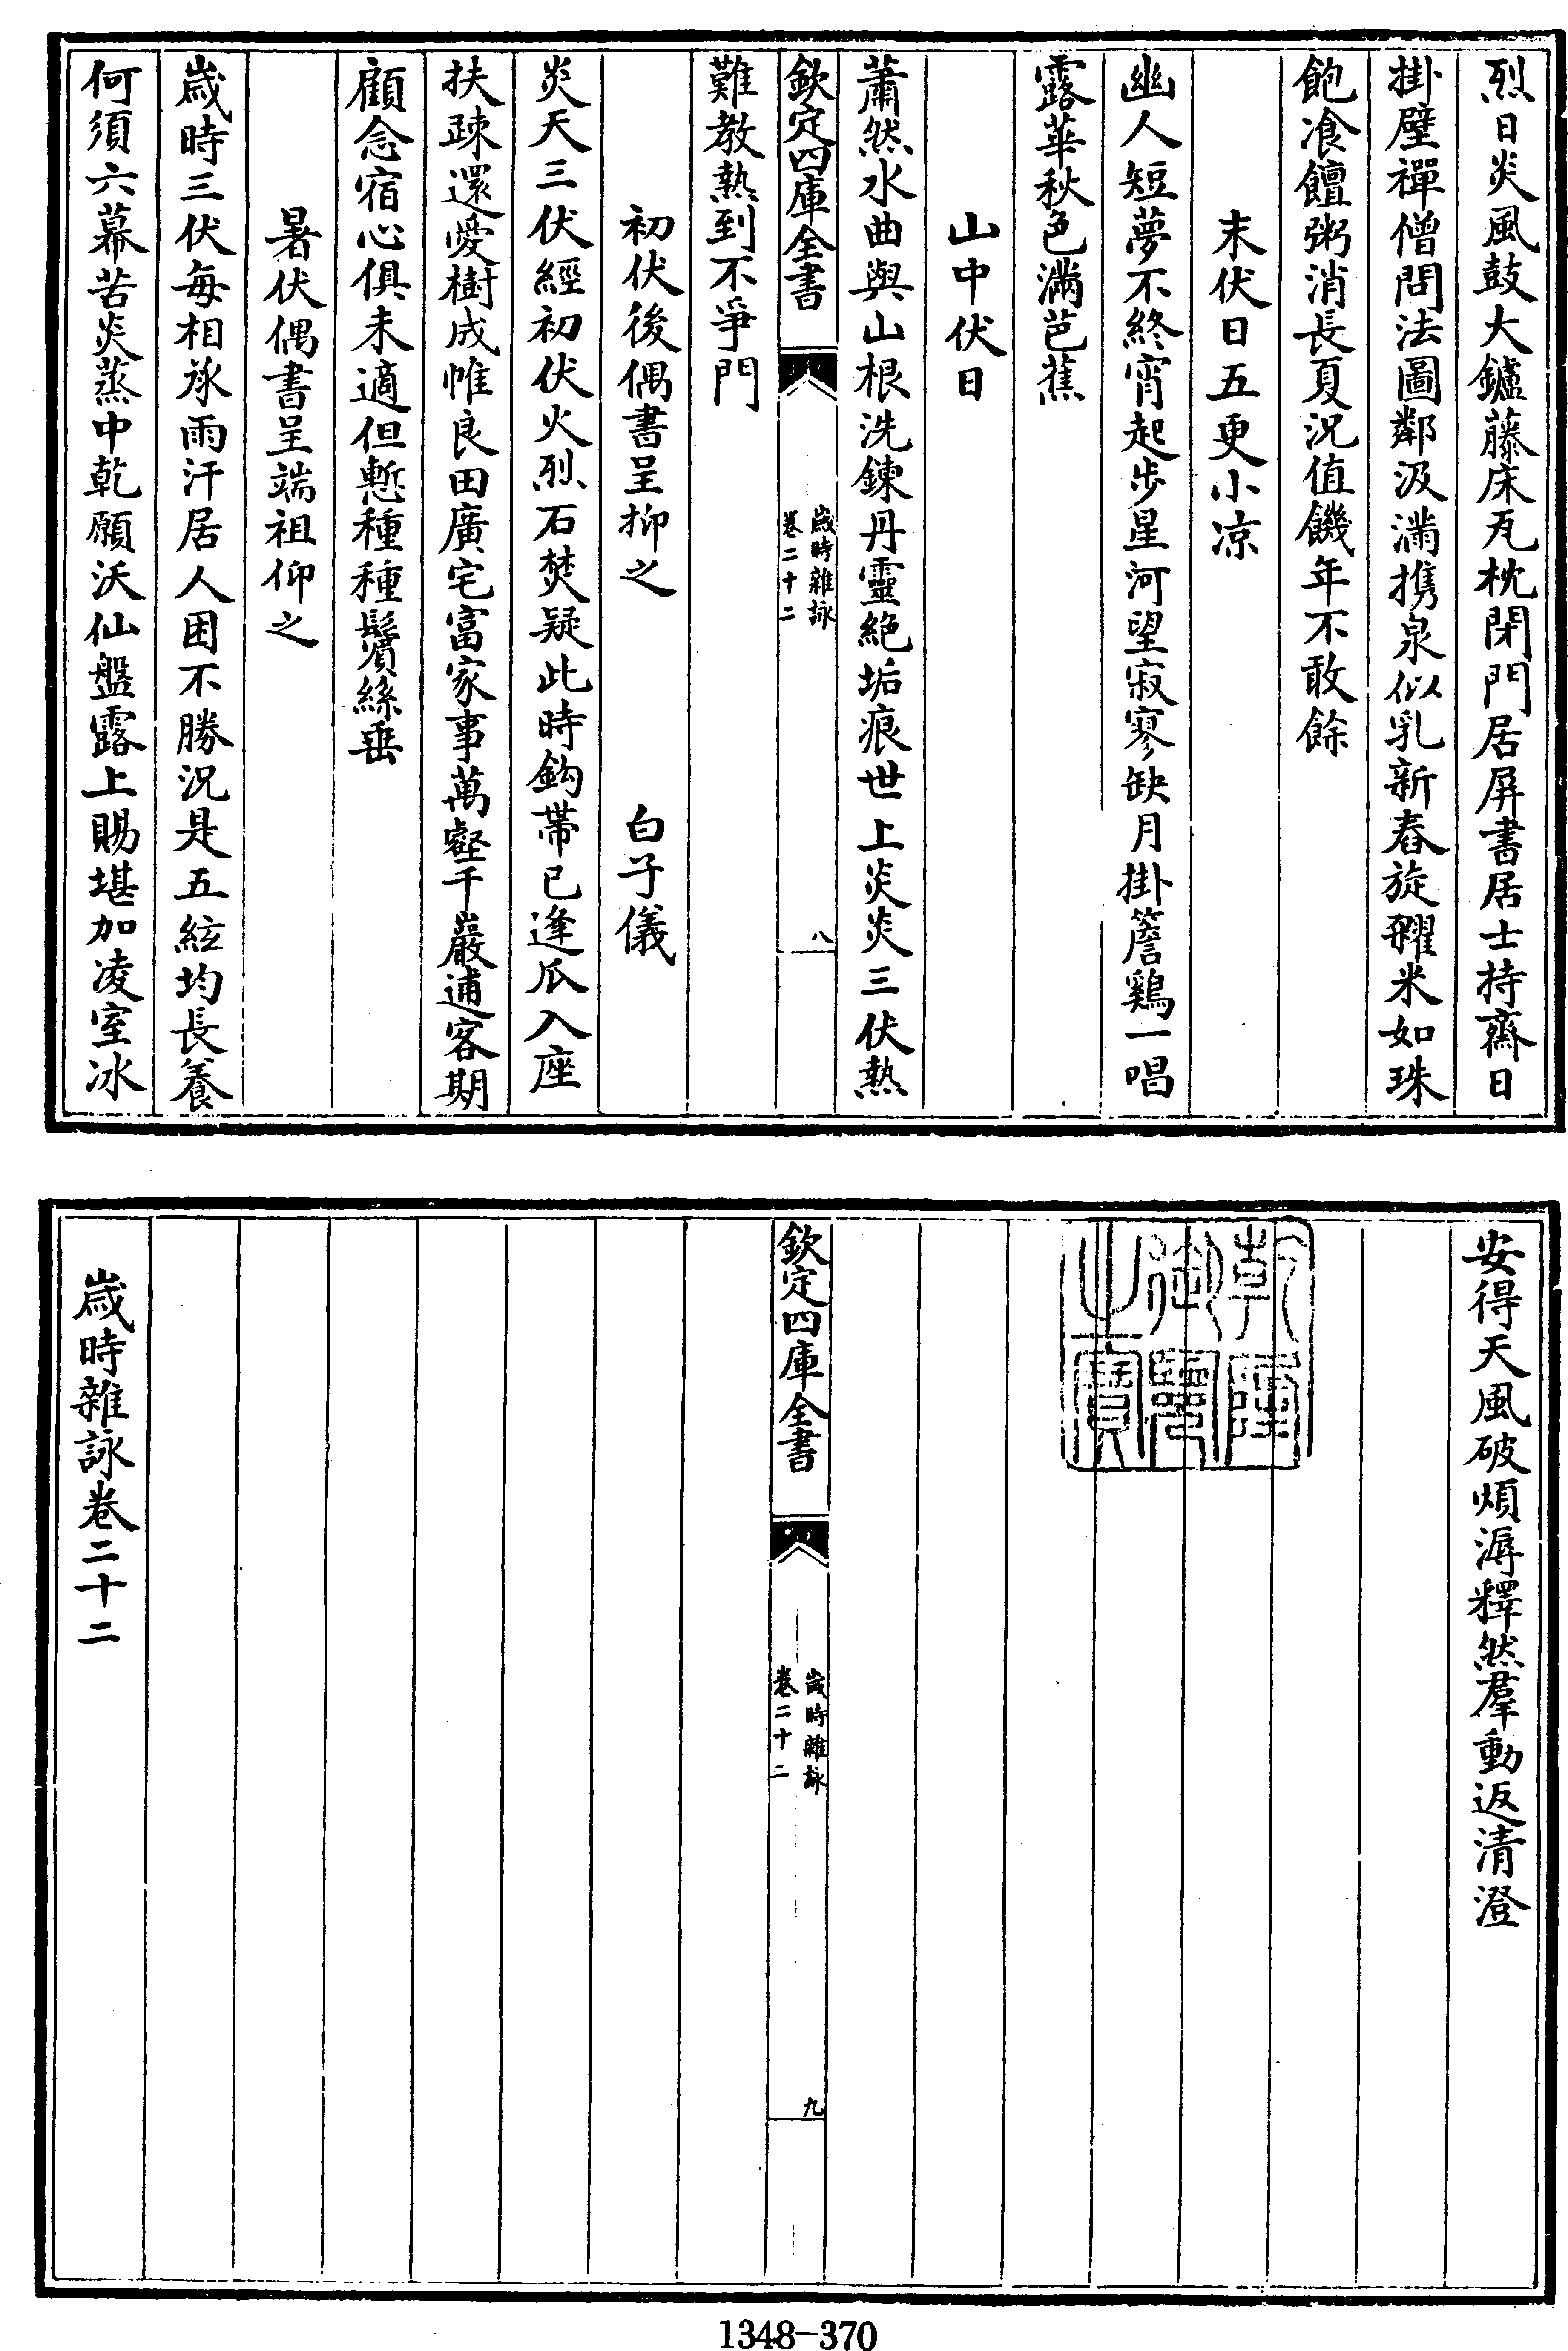 烈日炎風鼓大鑪藤床瓦枕閉門居屏書居士持齋日
掛壁禪僧問法圖鄰汲滿携泉似乳新舂旋糶米如珠
飽飡饘粥消長夏况值饑年不敢餘
末伏日五更小凉
幽人短夢不終宵起步星河望寂寥缺月掛簷鷄一唱
露華秋色滿芭蕉
山中伏日
蕭然水曲與山根洗鍊丹靈絶垢痕世上炎炎三伏熱
欽定四庫全書
歲時雜詠
卷二十二
八
難教熱到不爭門
初伏後偶書呈抑之 白子儀
炎天三伏經初伏火烈石焚疑此時鈎帶已逢瓜入座
扶疎還愛樹成帷良田廣宅富家事萬壑千巖逋客期
顧念宿心俱未適但慙種種鬢絲垂
暑伏偶書呈端祖仰之
歲時三伏每相承雨汗居人困不勝况是五絃均長養
何須六幕苦炎蒸中乾願沃仙盤露上賜堪加凌室冰
安得天風破煩溽釋然羣動返清澄
乾隆御覽之寶
欽定四庫全書
歲時雜詠
卷二十二
九
歲時雜詠卷二十二
1348-370